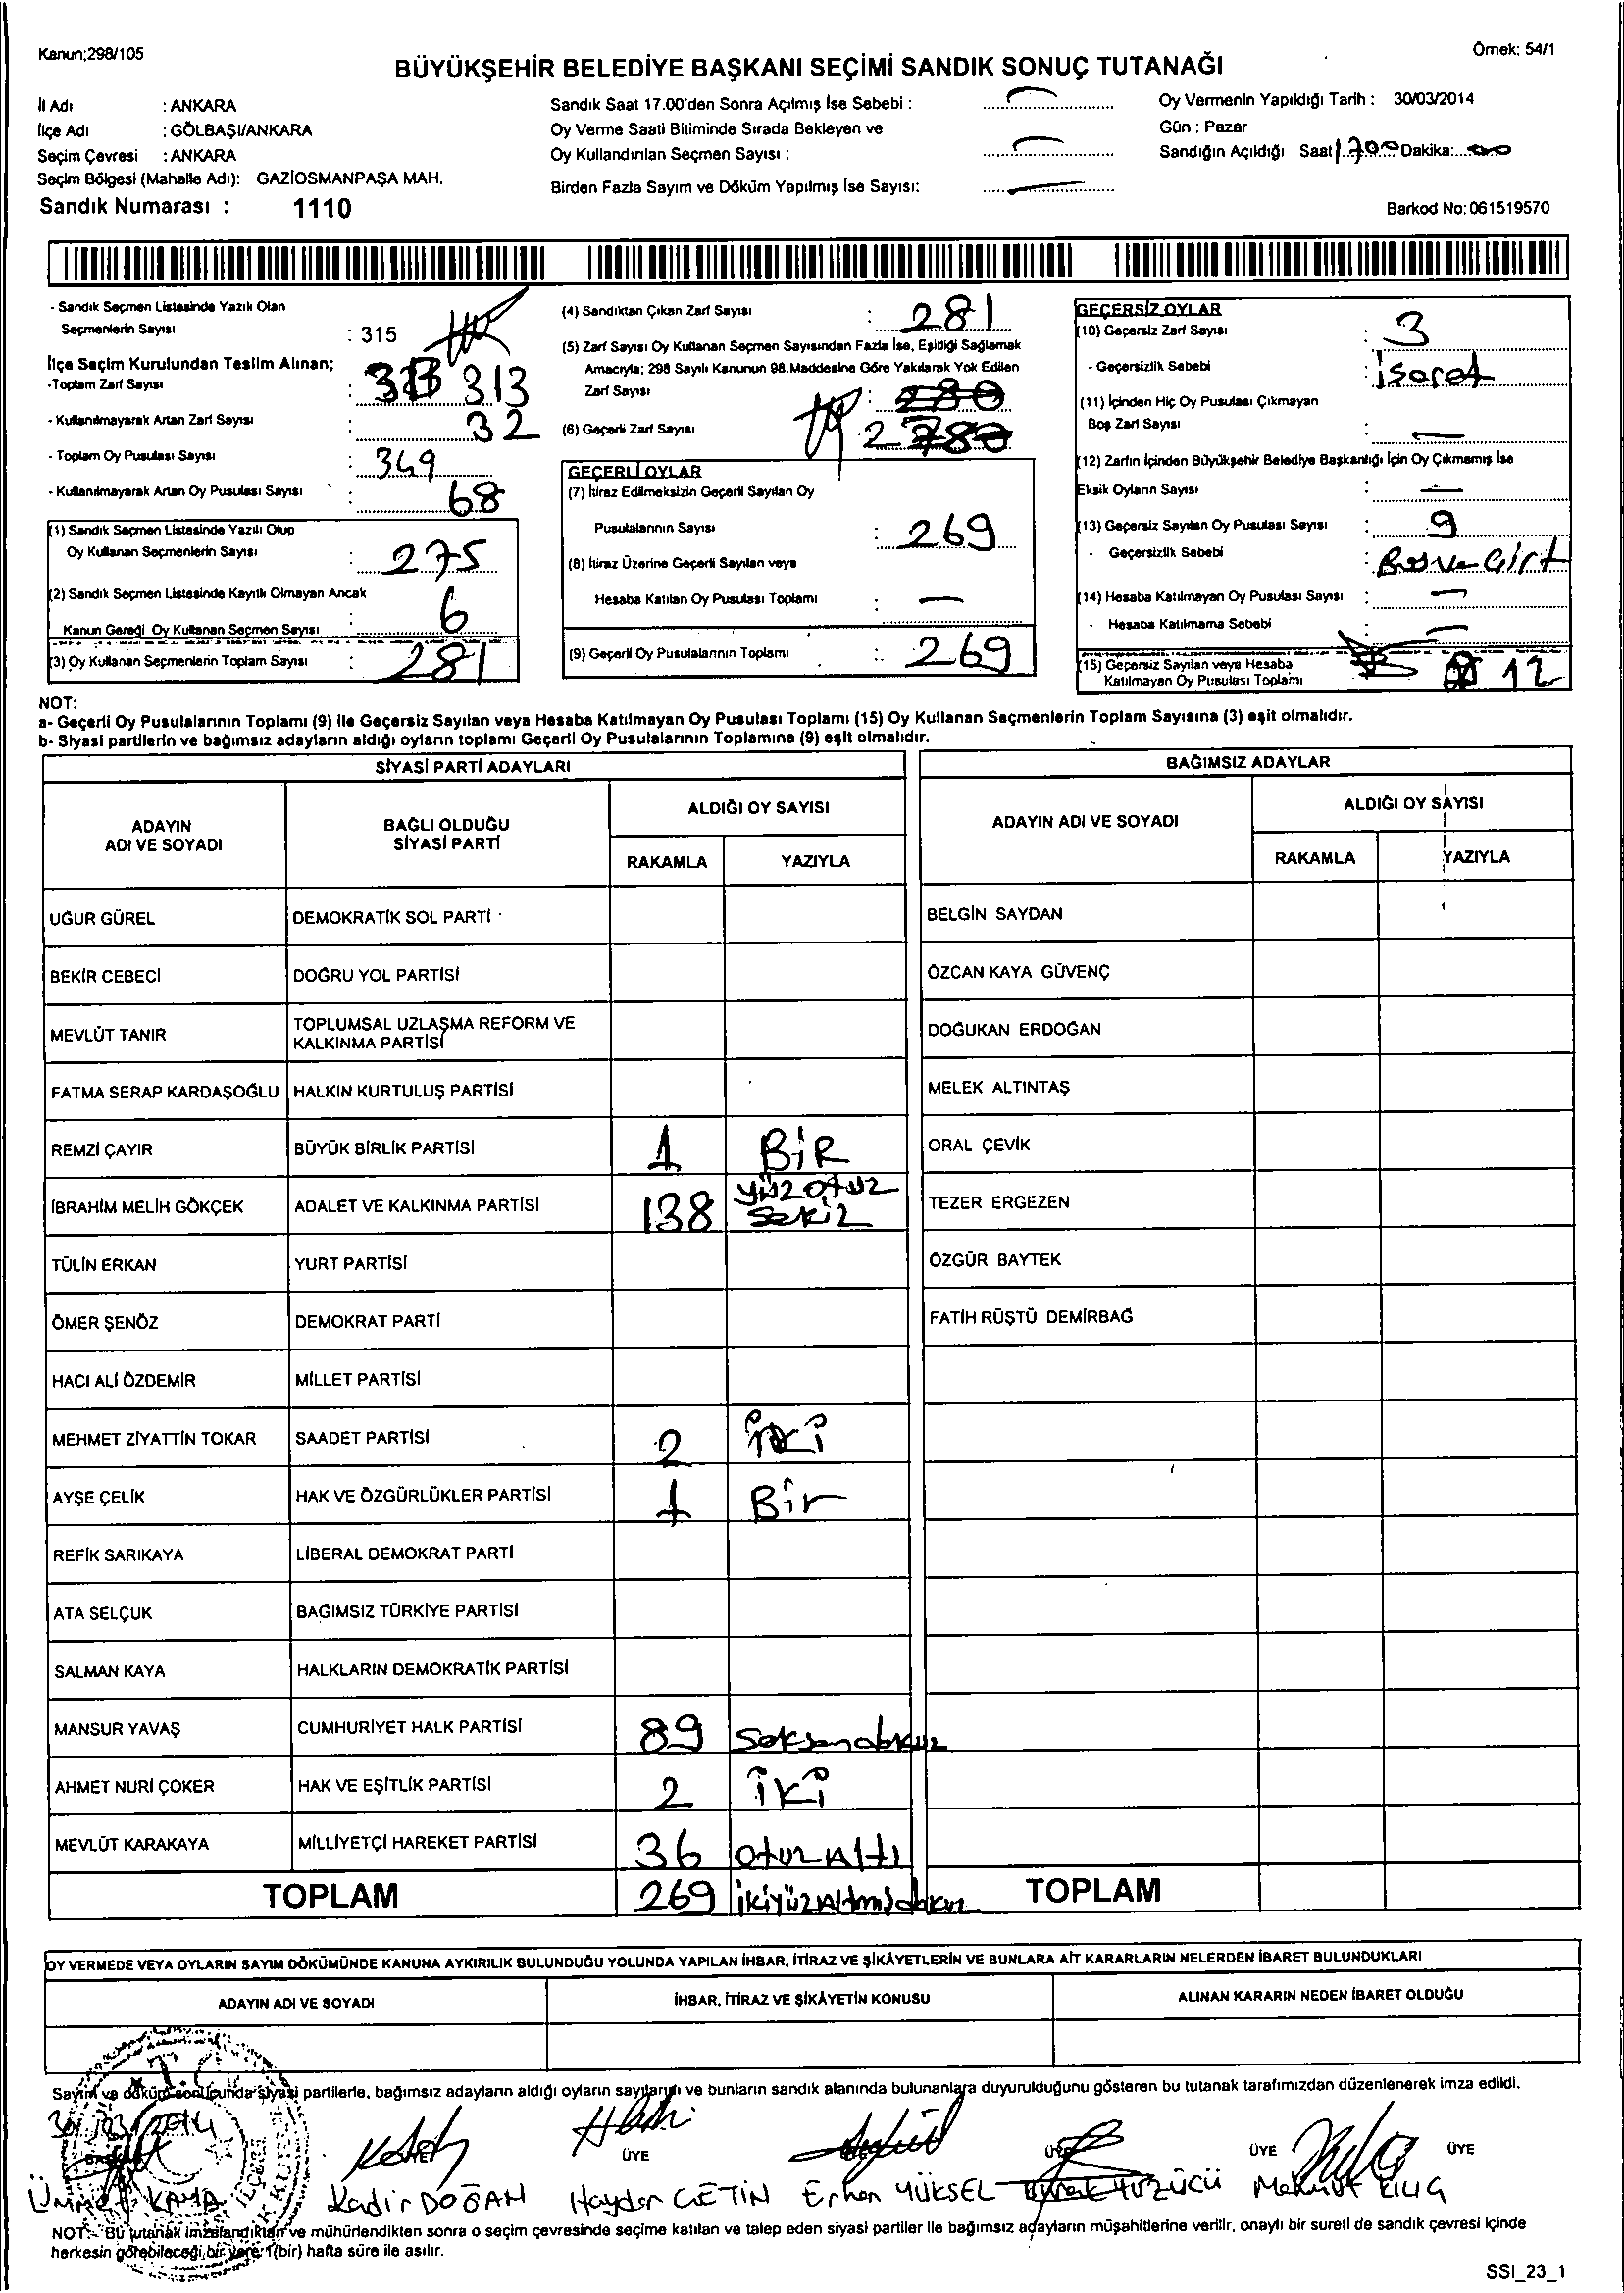 Kanun;298/105
Örnek: 54/1
BÜYÜKŞEHİR BELEDİYE BAŞKANI SEÇİMİ SANDIK SONUÇ TUTANAĞI
İl Adı : ANKARA
İlçe Adı : GÖLBAŞI/ANKARA
Seçim Çevresi : ANKARA
Seçim Bölgesi (Mahalle Adı): GAZİOSMANPAŞA MAH.
Sandık Numarası : 1110
Sandık Saat 17.00'den Sonra Açılmış İse Sebebi : —
Oy Verme Saati Bitiminde Sırada Bekleyen ve
Oy Kullandırılan Seçmen Sayısı : —
Birden Fazla Sayım ve Döküm Yapılmış İse Sayısı: —
Oy Vermenin Yapıldığı Tarih : 30/03/2014
Gün : Pazar
Sandığın Açıldığı Saat 1700 Dakika: 00
Barkod No: 061519570
- Sandık Seçmen Listesinde Yazılı Olan
Seçmenlerin Sayısı : 315
İlçe Seçim Kurulundan Teslim Alınan;
-Toplam Zarf Sayısı : 313
- Kullanılmayarak Artan Zarf Sayısı : 32
- Toplam Oy Pusulası Sayısı : 349
- Kullanılmayarak Artan Oy Pusulası Sayısı : 68
(1) Sandık Seçmen Listesinde Yazılı Olup
Oy Kullanan Seçmenlerin Sayısı : 275
(2) Sandık Seçmen Listesinde Kayıtlı Olmayan Ancak
Kanun Gereği Oy Kullanan Seçmen Sayısı : 6
(3) Oy Kullanan Seçmenlerin Toplam Sayısı : 281
(4) Sandıktan Çıkan Zarf Sayısı : 281
(5) Zarf Sayısı Oy Kullanan Seçmen Sayısından Fazla İse, Eşitliği Sağlamak
Amacıyla; 298 Sayılı Kanunun 98.Maddesine Göre Yakılarak Yok Edilen
Zarf Sayısı : 280
(6) Geçerli Zarf Sayısı
GEÇERLİ OYLAR
(7) İtiraz Edilmeksizin Geçerli Sayılan Oy
Pusulalarının Sayısı : 269
(8) İtiraz Üzerine Geçerli Sayılan veya
Hesaba Katılan Oy Pusulası Toplamı : —
(9) Geçerli Oy Pusulalarının Toplamı : 269
GEÇERSİZ OYLAR
(10) Geçersiz Zarf Sayısı : 3
- Geçersizlik Sebebi : İşaret
(11) İçinden Hiç Oy Pusulası Çıkmayan
Boş Zarf Sayısı : —
(12) Zarfın İçinden Büyükşehir Belediye Başkanlığı İçin Oy Çıkmamış İse
Eksik Oyların Sayısı : —
(13) Geçersiz Sayılan Oy Pusulası Sayısı : 9
- Geçersizlik Sebebi : Boş ve Çift
(14) Hesaba Katılmayan Oy Pusulası Sayısı : —
- Hesaba Katılmama Sebebi : —
(15) Geçersiz Sayılan veya Hesaba
Katılmayan Oy Pusulası Toplamı 12
NOT:
a- Geçerli Oy Pusulalarının Toplamı (9) ile Geçersiz Sayılan veya Hesaba Katılmayan Oy Pusulası Toplamı (15) Oy Kullanan Seçmenlerin Toplam Sayısına (3) eşit olmalıdır.
b- Siyasi partilerin ve bağımsız adayların aldığı oyların toplamı Geçerli Oy Pusulalarının Toplamına (9) eşit olmalıdır.
SİYASİ PARTİ ADAYLARI
ADAYIN ADI VE SOYADI BAĞLI OLDUĞU SİYASİ PARTİ ALDIĞI OY SAYISI
RAKAMLA YAZIYLA
UĞUR GÜREL DEMOKRATİK SOL PARTİ
BEKİR CEBECİ DOĞRU YOL PARTİSİ
MEVLÜT TANIR TOPLUMSAL UZLAŞMA REFORM VE KALKINMA PARTİSİ
FATMA SERAP KARDAŞOĞLU HALKIN KURTULUŞ PARTİSİ
REMZİ ÇAYIR BÜYÜK BİRLİK PARTİSİ 1 BİR
İBRAHİM MELİH GÖKÇEK ADALET VE KALKINMA PARTİSİ 138 yüzotuz sekiz
TÜLİN ERKAN YURT PARTİSİ
ÖMER ŞENÖZ DEMOKRAT PARTİ
HACI ALİ ÖZDEMİR MİLLET PARTİSİ
MEHMET ZİYATTİN TOKAR SAADET PARTİSİ 2 iki
AYŞE ÇELİK HAK VE ÖZGÜRLÜKLER PARTİSİ 1 Bir
REFİK SARIKAYA LİBERAL DEMOKRAT PARTİ
ATA SELÇUK BAĞIMSIZ TÜRKİYE PARTİSİ
SALMAN KAYA HALKLARIN DEMOKRATİK PARTİSİ
MANSUR YAVAŞ CUMHURİYET HALK PARTİSİ 89 Seksendokuz
AHMET NURİ ÇOKER HAK VE EŞİTLİK PARTİSİ 2 iki
MEVLÜT KARAKAYA MİLLİYETÇİ HAREKET PARTİSİ 36 otuzAltı
TOPLAM 269 ikiyüzAltmışdokuz
BAĞIMSIZ ADAYLAR
ADAYIN ADI VE SOYADI ALDIĞI OY SAYISI
RAKAMLA YAZIYLA
BELGİN SAYDAN
ÖZCAN KAYA GÜVENÇ
DOĞUKAN ERDOĞAN
MELEK ALTINTAŞ
ORAL ÇEVİK
TEZER ERGEZEN
ÖZGÜR BAYTEK
FATİH RÜŞTÜ DEMİRBAĞ
TOPLAM
OY VERMEDE VEYA OYLARIN SAYIM DÖKÜMÜNDE KANUNA AYKIRILIK BULUNDUĞU YOLUNDA YAPILAN İHBAR, İTİRAZ VE ŞİKÂYETLERİN VE BUNLARA AİT KARARLARIN NELERDEN İBARET BULUNDUKLARI
ADAYIN ADI VE SOYADI İHBAR, İTİRAZ VE ŞİKÂYETİN KONUSU ALINAN KARARIN NEDEN İBARET OLDUĞU
T.C.
Sayım ve döküm sonucunda siyasi partilerle, bağımsız adayların aldığı oyların sayılarını ve bunların sandık alanında bulunanlara duyurulduğunu gösteren bu tutanak tarafımızdan düzenlenerek imza edildi.
30/03/2014
ÜYE ÜYE ÜYE
Ümmet KAYA Kadir DOĞAN Haydar ÇETİN Erhan YÜKSEL YÜZÜCÜ KILIÇ
NOT:- Bu tutanak imzalandıktan ve mühürlendikten sonra o seçim çevresinde seçime katılan ve talep eden siyasi partiler ile bağımsız adayların müşahitlerine verilir, onaylı bir sureti de sandık çevresi içinde
herkesin görebileceği bir yere 1(bir) hafta süre ile asılır.
SSI_23_1